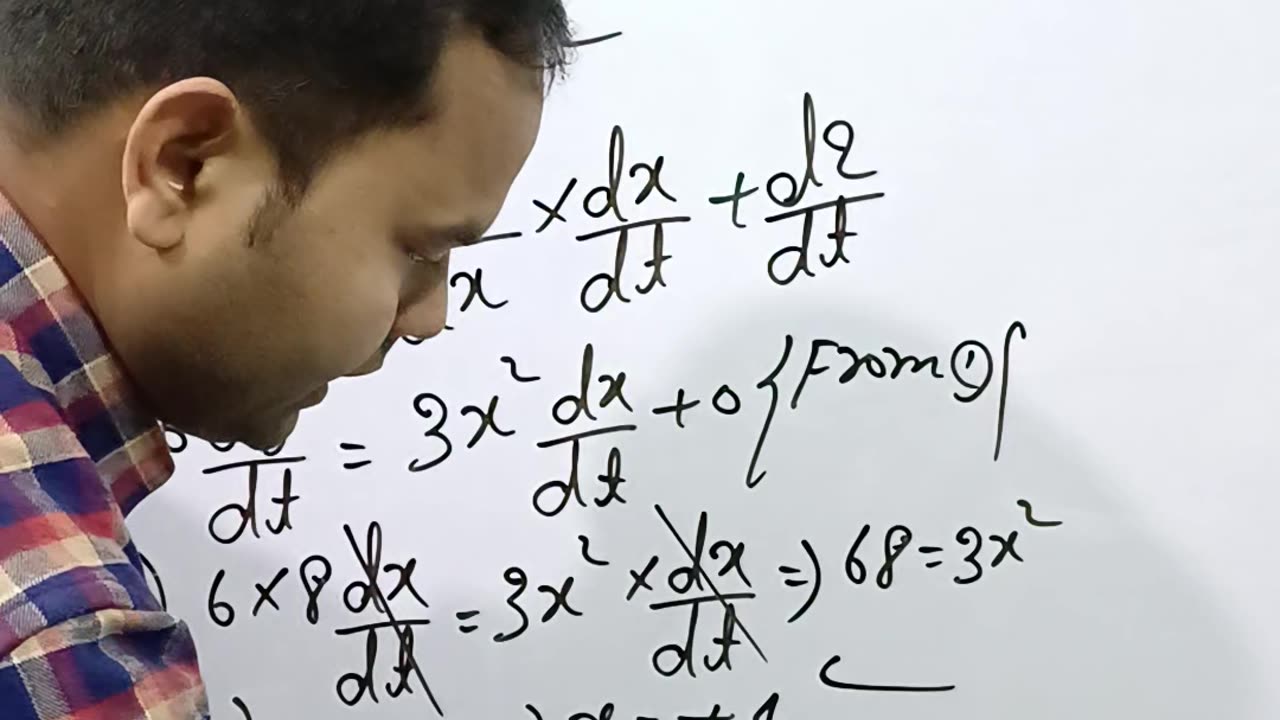 x × dx/dt + d2/dt
dt = 3x² dx/dt + 0 {From ①}
6 × 8 dx/dt = 3x² × dx/dt ⇒ 68 = 3x²